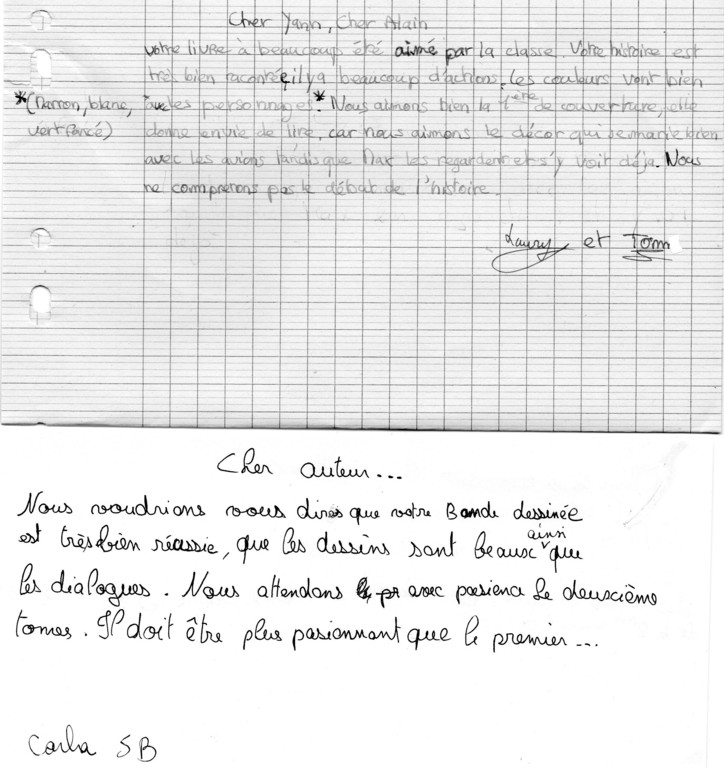 Cher Yann, Cher Alain
votre livre à beaucoup été aimé par la classe. Votre histoire est
très bien racontée, il y a beaucoup d'actions. Les couleurs vont bien
*(Marron, blanc, vert foncé)
avec les personnages.* Nous aimons bien la 1ère de couverture, elle
donne envie de lire, car nous aimons le décor qui se marie bien
avec les avions tandis que Max les regardent et s'y voit déjà. Nous
ne comprenons pas le début de l'histoire.
Laury et Tom
Cher auteur...
Nous voudrions vous dires que votre Bande dessinée
est très bien réussie, que les dessins sont beaux ainsi que
les dialogues. Nous attendons avec pasience le deuxième
tomes. Il doit être plus pasionnant que le premier...
Carla SB